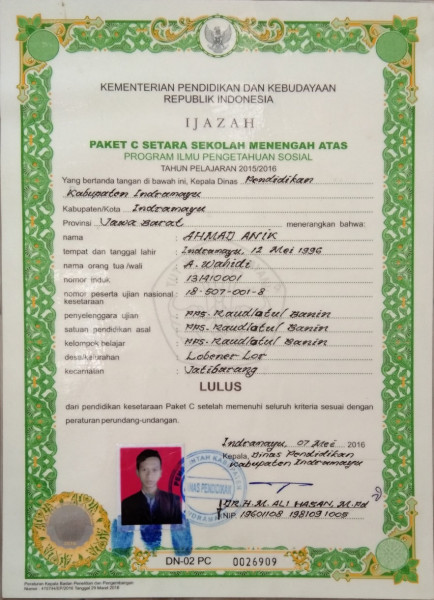 KEMENTERIAN PENDIDIKAN DAN KEBUDAYAAN
REPUBLIK INDONESIA
IJAZAH
PAKET C SETARA SEKOLAH MENENGAH ATAS
PROGRAM ILMU PENGETAHUAN SOSIAL
TAHUN PELAJARAN 2015/2016
Yang bertanda tangan di bawah ini, Kepala Dinas Pendidikan
Kabupaten Indramayu
Kabupaten/Kota Indramayu
Provinsi Jawa Barat menerangkan bahwa:
nama : AHMAD ANIK
tempat dan tanggal lahir : Indramayu, 12 Mei 1996
nama orang tua/wali : A. Wahidi
nomor induk : 131410001
nomor peserta ujian nasional : 18-507-001-8
kesetaraan
penyelenggara ujian : PPS. Raudlatul Banin
satuan pendidikan asal : PPS. Raudlatul Banin
kelompok belajar : PPS. Raudlatul Banin
desa/kelurahan : Lobener Lor
kecamatan : Jatibarang
LULUS
dari pendidikan kesetaraan Paket C setelah memenuhi seluruh kriteria sesuai dengan
peraturan perundang-undangan.
Indramayu, 07 Mei 2016
Kepala, Dinas Pendidikan
Kabupaten Indramayu
DINAS PENDIDIKAN
DR. H. M. ALI HASAN, M.Pd
NIP. 19601108 198109 1005
DN-02 PC 0026909
Peraturan Kepala Badan Penelitian dan Pengembangan